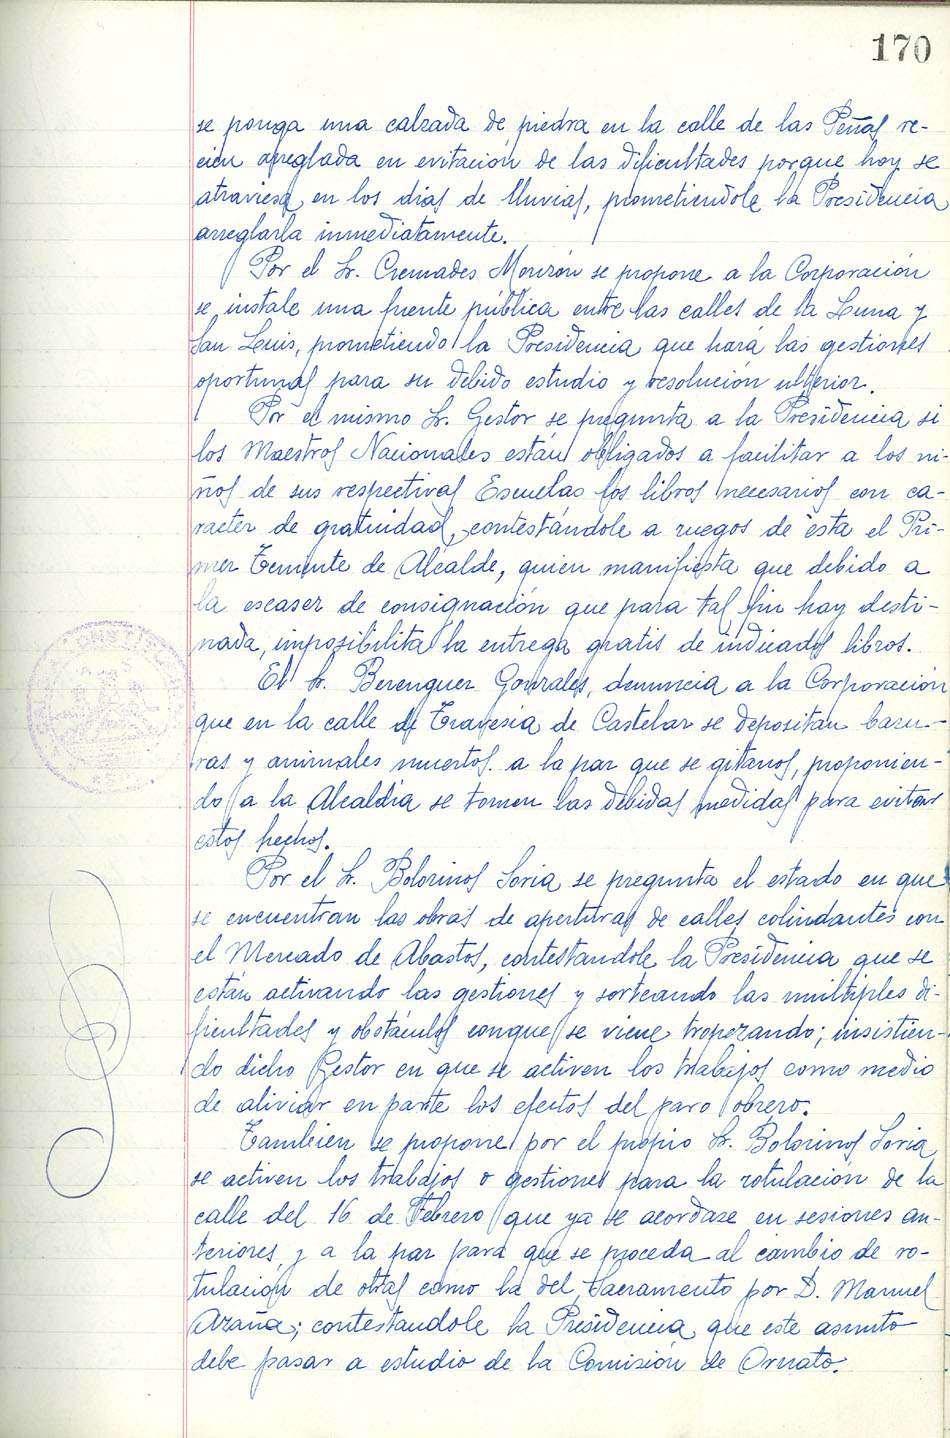 170
se ponga una calzada de piedra en la calle de las Peñas re-
cien arreglada en evitación de las dificultades porque hoy se
atraviesa en los días de lluvias, prometiendole la Presidencia
arreglarla inmediatamente.
Por el Sr. Cremades Monzón se propone a la Corporación
se instale una fuente pública entre las calles de la Luna y
San Luis, prometiendo la Presidencia que hará las gestiones
oportunas para su debido estudio y resolución ulterior.
Por el mismo Sr. Gestor se pregunta a la Presidencia si
los Maestros Nacionales están obligados a facilitar a los ni-
ños de sus respectivas Escuelas los libros necesarios con ca-
racter de gratuidad, contestándole a ruegos de ésta el Pri-
mer Teniente de Alcalde, quien manifiesta que debido a
la escaser de consignación que para tal fin hay desti-
nada, imposibilita la entrega gratis de indicados libros.
El Sr. Berenguer Gonzales, denuncia a la Corporación
que en la calle de Travesía de Castelar se depositan basu-
ras y animales muertos a la par que se gitanos, proponien-
do a la Alcaldía se tomen las debidas medidas para evitar
estos hechos.
Por el Sr. Bolorinos Soria se pregunta el estado en que
se encuentran las obras de aperturas de calles colindantes con
el Mercado de Abastos, contestandole la Presidencia que se
están activando las gestiones y sorteando las multiples di-
ficultades y obstáculos conque se viene tropezando; insistien-
do dicho Gestor en que se activen los trabajos como medio
de aliviar en parte los efectos del paro obrero.
Tambien se propone por el propio Sr. Bolorinos Soria
se activen los trabajos o gestiones para la rotulación de la
calle del 16 de Febrero que ya se acordase en sesiones an-
teriores, y a la par para que se proceda al cambio de ro-
tulación de otras como la del Sacramento por D. Manuel
Azaña; contestandole la Presidencia que este asunto
debe pasar a estudio de la Comisión de Ornato.